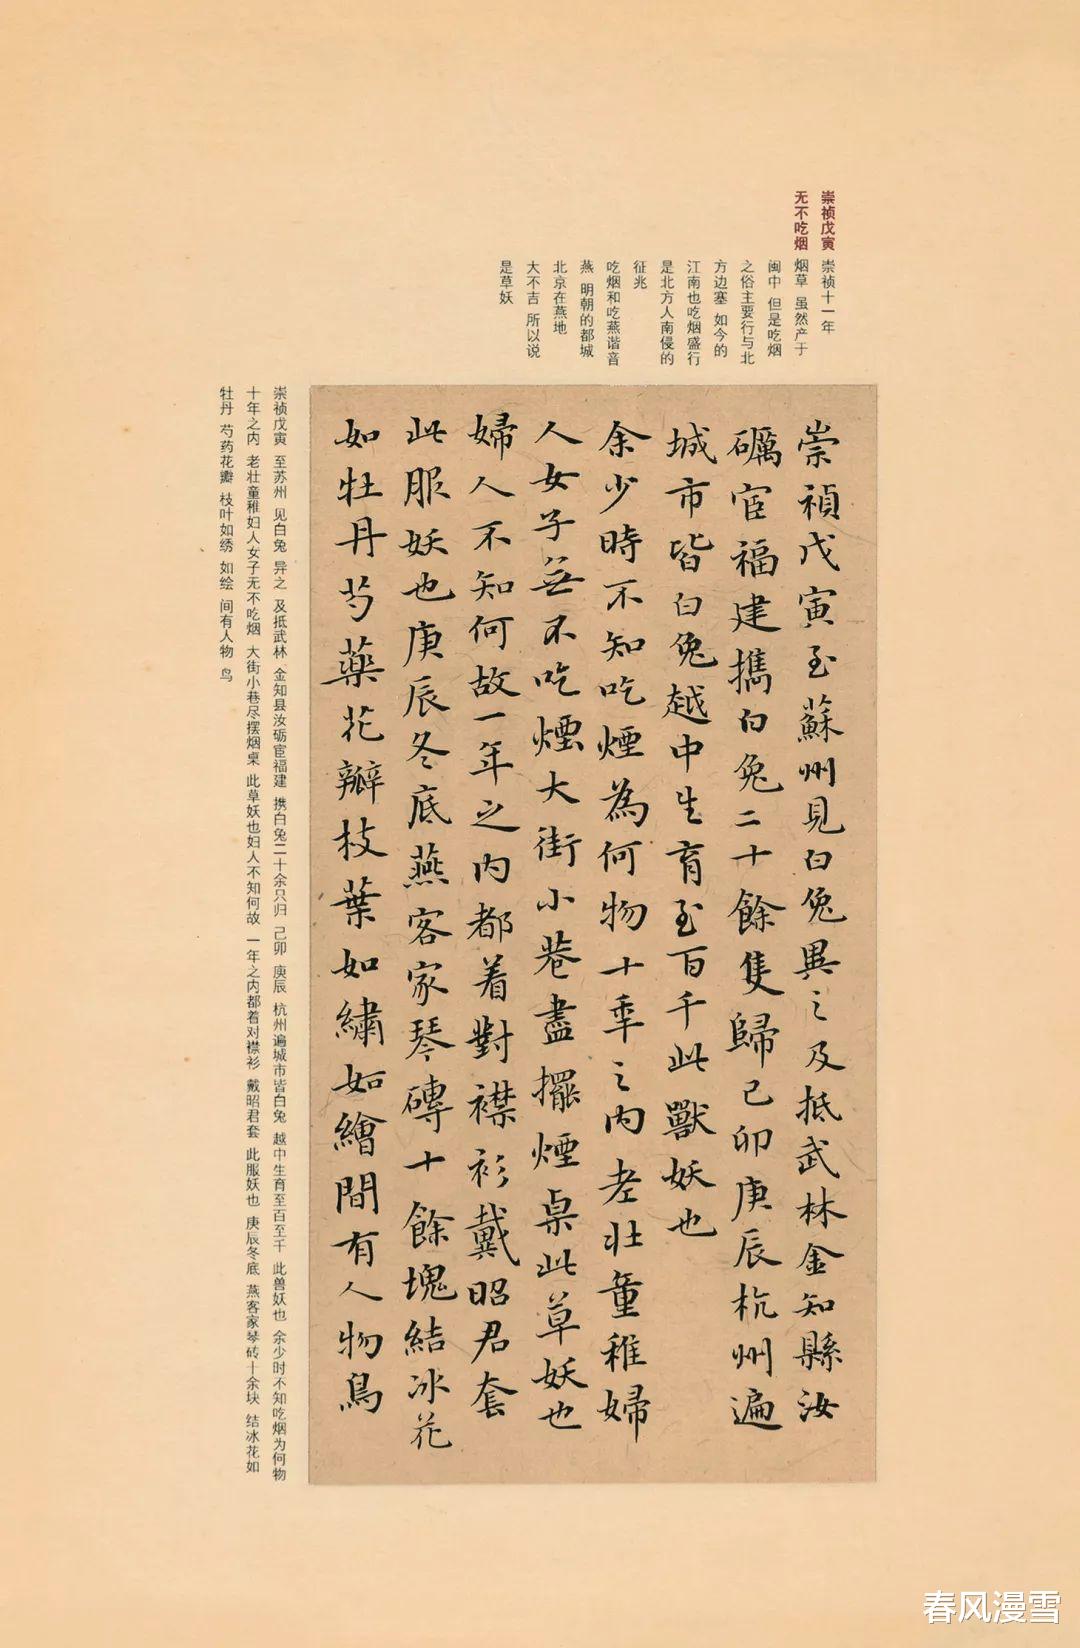 崇祯戊寅
无不吃烟
崇祯十一年
烟草 虽然产于
闽中 但是吃烟
之俗主要行与北
方边塞 如今的
江南也吃烟盛行
是北方人南侵的
征兆
吃烟和吃燕谐音
燕 明朝的都城
北京在燕地
大不吉 所以说
是草妖
崇禎戊寅至蘇州見白兔異之及抵武林金知縣汝
礪宦福建攜白兔二十餘隻歸己卯庚辰杭州遍
城市皆白兔越中生育至百千此獸妖也
余少時不知吃煙為何物十年之內老壯童稚婦
人女子無不吃煙大街小巷盡擺煙桌此草妖也
婦人不知何故一年之內都着對襟衫戴昭君套
此服妖也庚辰冬底燕客家琴磚十餘塊結冰花
如牡丹芍藥花瓣枝葉如繡如繪間有人物鳥
崇祯戊寅 至苏州 见白兔 异之 及抵武林 金知县汝砺宦福建 携白兔二十余只归 己卯 庚辰 杭州遍城市皆白兔 越中生育至百至千 此兽妖也 余少时不知吃烟为何物
十年之内 老壮童稚妇人女子无不吃烟 大街小巷尽摆烟桌 此草妖也妇人不知何故 一年之内都着对襟衫 戴昭君套 此服妖也 庚辰冬底 燕客家琴砖十余块 结冰花如
牡丹 芍药花瓣 枝叶如绣 如绘 间有人物 鸟
春风漫雪